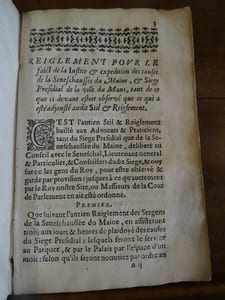 REIGLEMENT POVR LE
faict de la Iustice & expedition des causes
de la Seneschaussée du Maine, & Siege
Presidial de la ville du Mans, tant de
ce que ci devant estoit observé que ce qui a
esté adjousté audit Stil & Reiglement.
C'EST l'antien Stil & Reiglement
baillé aux Advocats & Praticiens,
tant du Siege Presidial que de la Se-
neschaussée du Maine, deliberé au
Conseil avec le Seneschal, Lieutenant general
& Particulier, & Conseillers dudit Siege, & ouy
sur ce les gens du Roy, pour estre observé &
gardé par provision jusques à ce qu'autrement
par le Roy nostre Sire, ou Messieurs de la Cour
de Parlement en ait esté ordonné.
PREMIER.
Que suivant l'antien Reiglement des Sergens
de la Seneschaussée du Maine, en assisteront
trois aux jours & heures de plaidoyé des causes
du Siege Presidial à lesquels feront le service
au Parquet, & par le Palais par l'espace d'un
mois: selon qu'ils seront nommez par ordre au
A ij